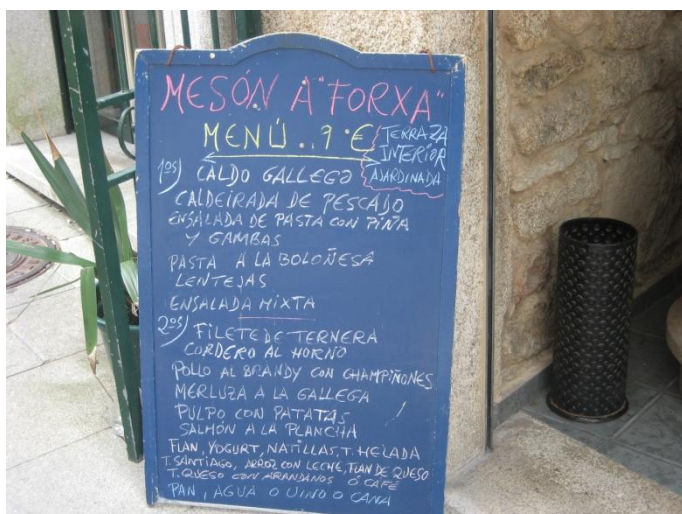 MESÓN A "FORXA"
MENÚ .. 9 . €
TERRAZA
INTERIOR
AJARDINADA
1ºS) CALDO GALLEGO
CALDEIRADA DE PESCADO
ENSALADA DE PASTA CON PIÑA
Y GAMBAS
PASTA A LA BOLOÑESA
LENTEJAS
ENSALADA MIXTA
2ºS) FILETE DE TERNERA
CORDERO AL HORNO
POLLO AL BRANDY CON CHAMPIÑONES
MERLUZA A LA GALLEGA
PULPO CON PATATAS
SALMÓN A LA PLANCHA
FLAN, YOGURT, NATILLAS, T. HELADA
T. SANTIAGO, ARROZ CON LECHE, FLAN DE QUESO
T. QUESO CON ARANDANOS Ó CAFÉ
PAN, AGUA O VINO O CAÑA